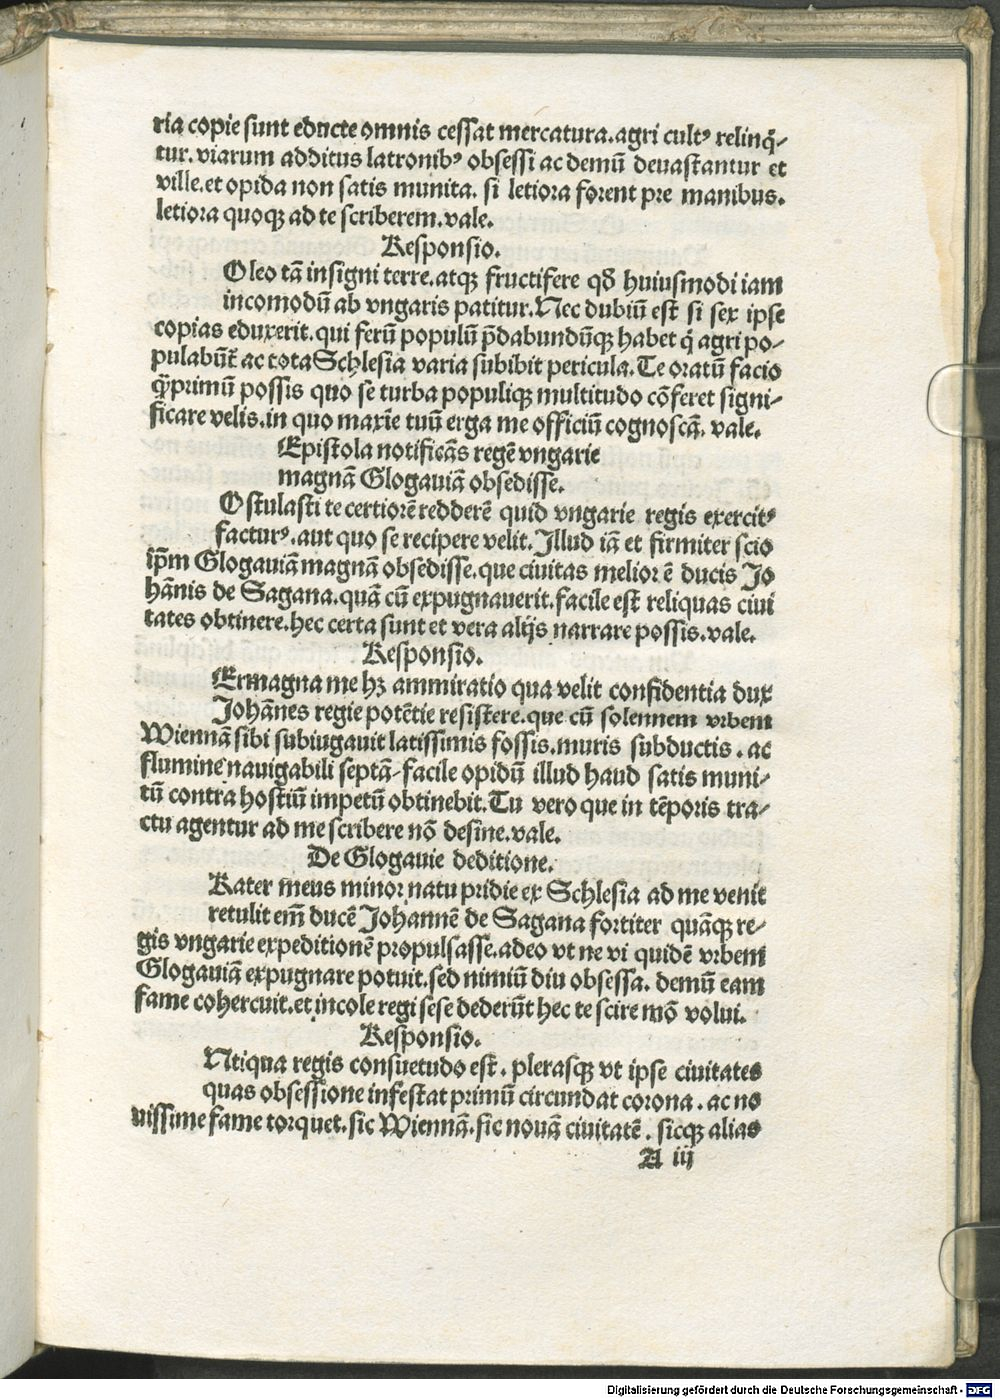 ria copie sunt educte omnis cessat mercatura.agri cultꝰ relinq̃-
tur.viarum additus latronibꝰ obsessi ac demũ deuastantur et
ville.et opida non satis munita. si letiora forent pre manibus.
letiora quoqꝫ ad te scriberem.vale.
Responsio.
Oleo tã insigni terre.atqꝫ fructifere qđ huiusmodi iam
incomodũ ab vngaris patitur.Nec dubiũ est si sex ipse
copias eduxerit.qui ferũ populũ p̃dabundũqꝫ habet q̃ agri po-
pulabũt̃ ac tota Schlesia varia subibit pericula.Te oratũ facio
q̃primũ possis quo se turba populiqꝫ multitudo cõferet signi-
ficare velis.in quo maxĩe tuũ erga me officiũ cognoscã. vale.
Epistola notificãs regẽ vngarie
magnã Glogauiã obsedisse.
Ostulasti te certiorẽ redderẽ quid vngarie regis exercitꝰ
facturꝰ.aut quo se recipere velit.Illud iã et firmiter scio
ip̃m Glogauiã magnã obsedisse.que ciuitas melior ẽ ducis Jo
hãnis de Sagana.quã cũ expugnauerit.facile est reliquas ciui
tates obtinere.hec certa sunt et vera alijs narrare possis.vale.
Responsio.
Ermagna me hꝫ ammiratio qua velit confidentia dux
Johãnes regie potẽtie resistere.que cũ solennem vrbem
Wiennã sibi subiugauit latissimis fossis.muris subductis . ac
flumine nauigabili septã-facile opidũ illud haud satis muni-
tũ contra hostiũ impetũ obtinebit.Tu vero que in tẽporis tra-
ctu agentur ad me scribere nõ desine.vale.
De Glogauie deditione.
Rater meus minor natu pridie ex Schlesia ad me venit
retulit em̃ ducẽ Johannẽ de Sagana fortiter quãqꝫ re-
gis vngarie expeditionẽ propulsasse.adeo vt ne vi quidẽ vrbem
Glogauiã expugnare potuit.sed nimiũ diu obsessa. demũ eam
fame cohercuit.et incole regi sese dederũt hec te scire mõ volui.
Responsio.
Ntiqua regis consuetudo est . plerasqꝫ vt ipse ciuitates
quas obsessione infestat primũ circundat corona . ac no
uissime fame torquet.sic Wiennã.sic nouã ciuitatẽ . sicqꝫ alias
A iij
Digitalisierung gefördert durch die Deutsche Forschungsgemeinschaft - DFG